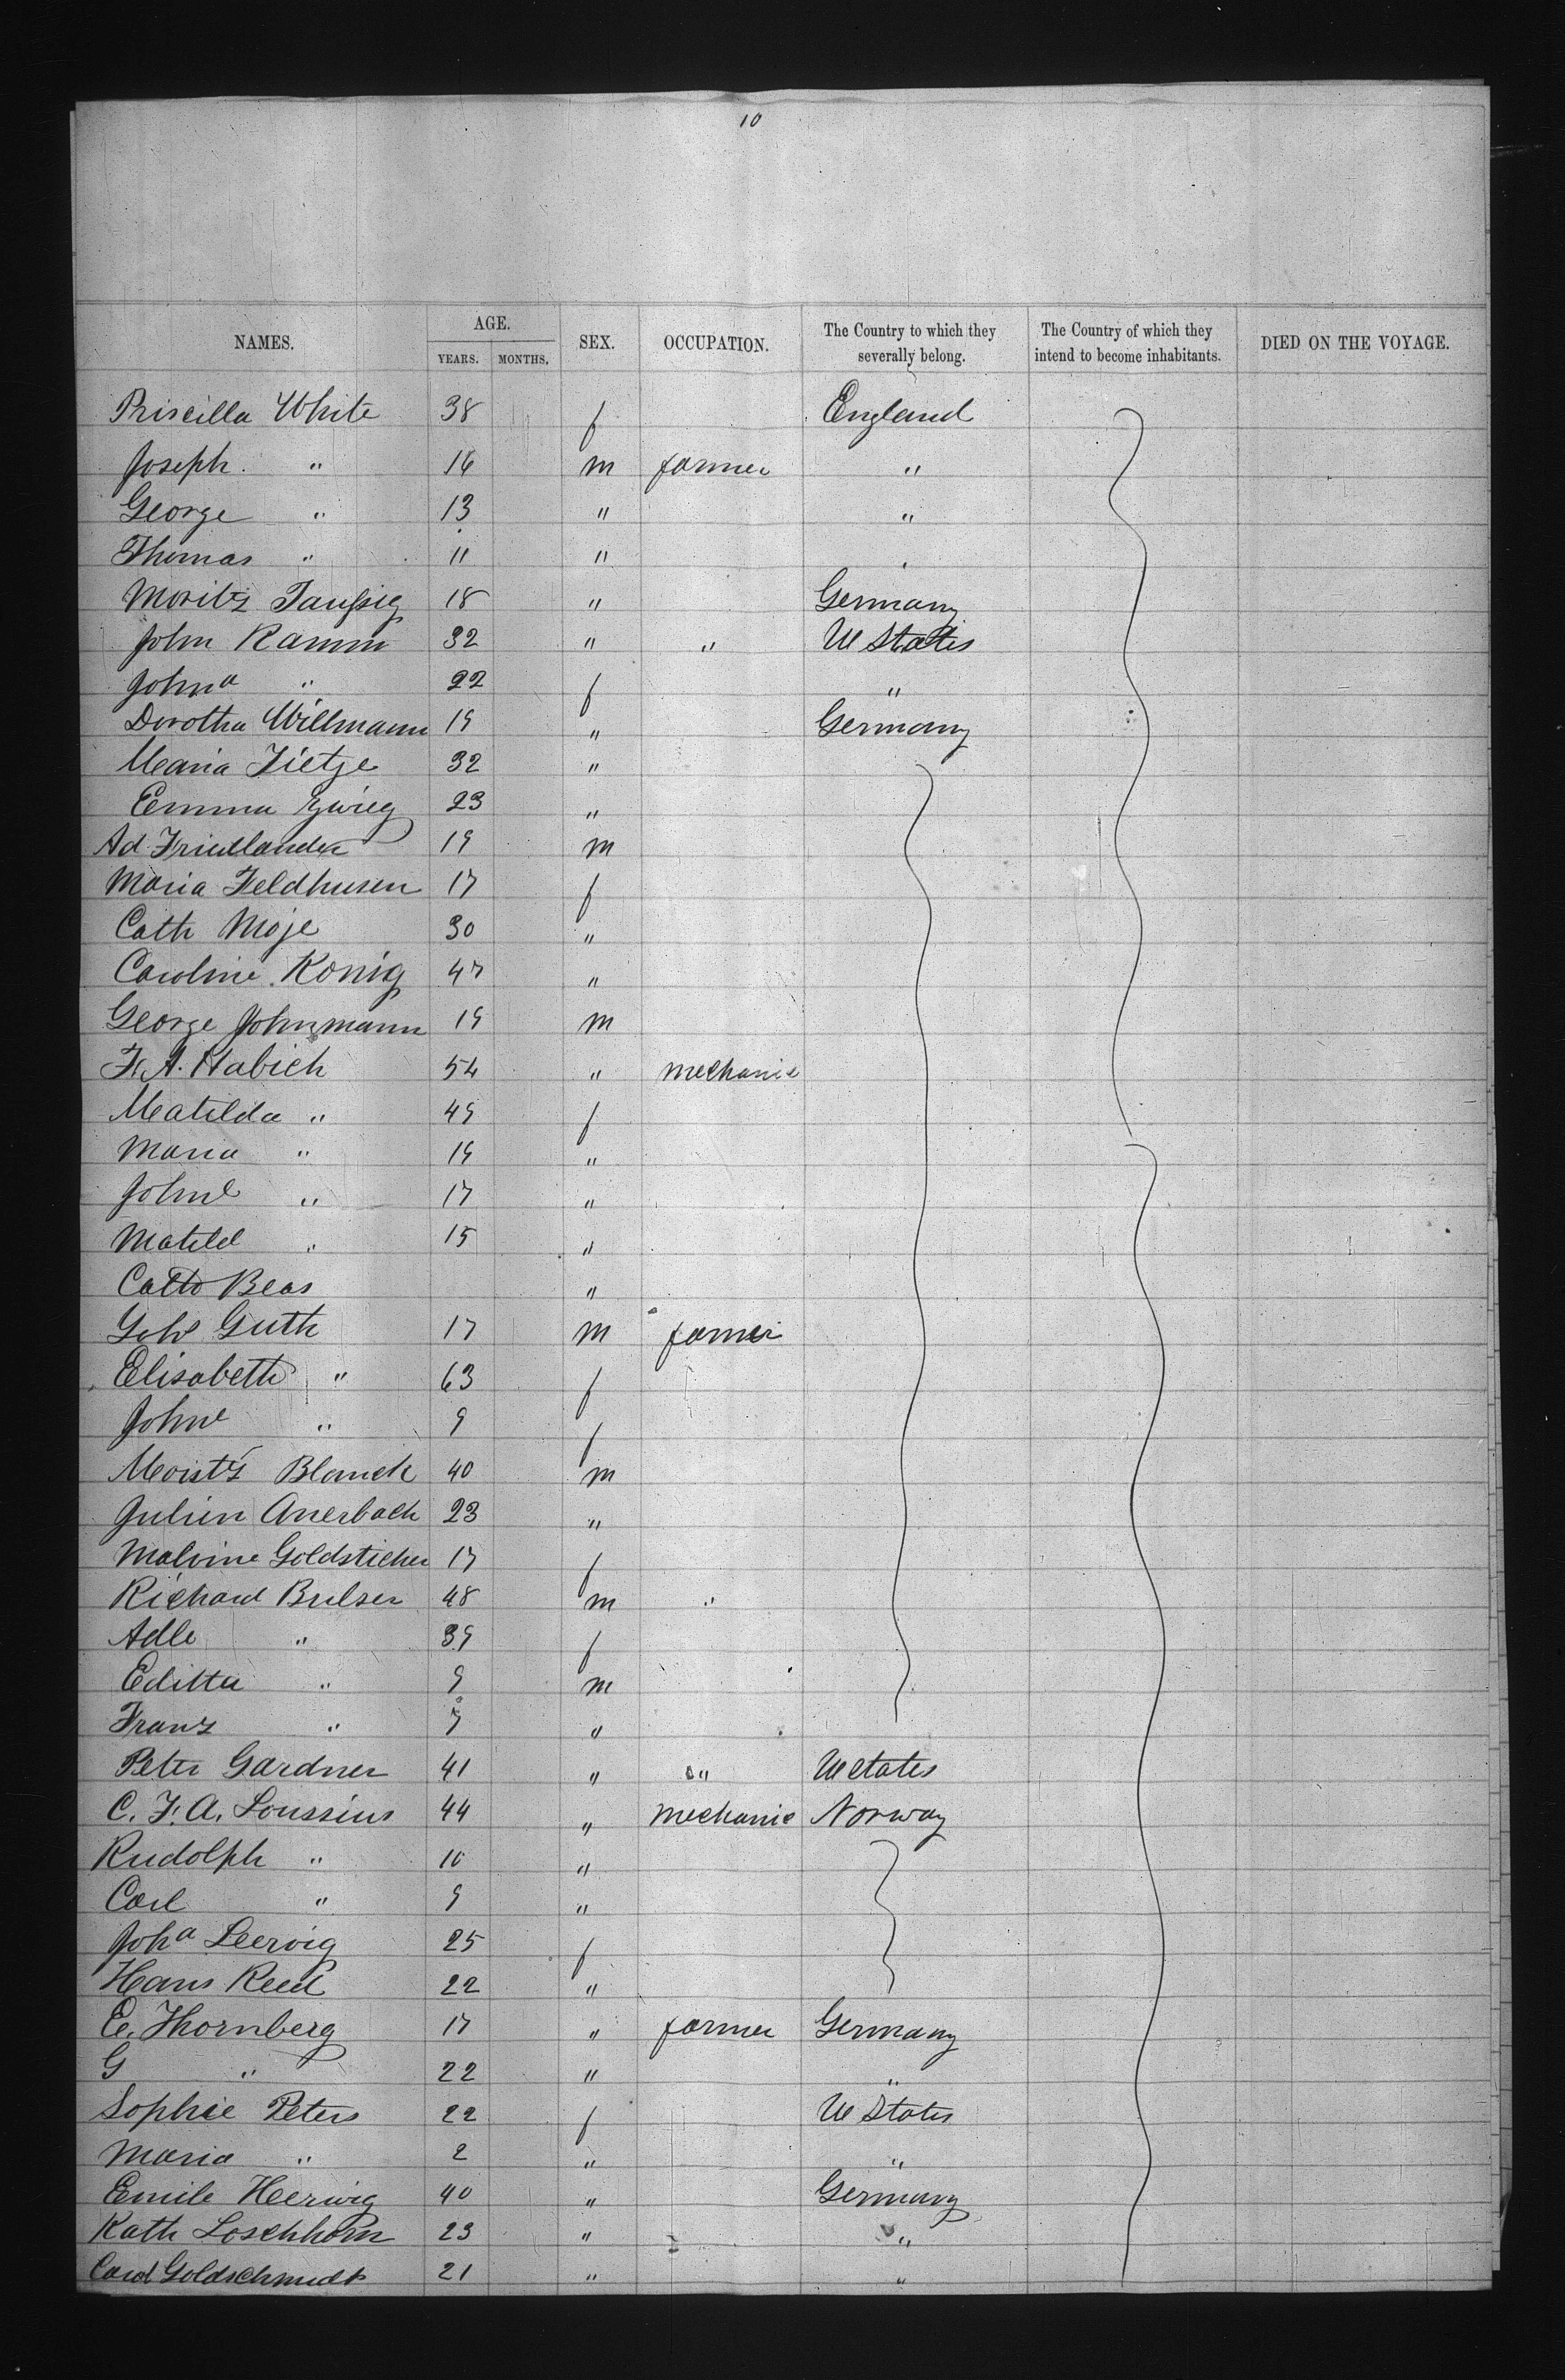 10
NAMES. AGE. YEARS. MONTHS. SEX. OCCUPATION. The Country to which they severally belong. The Country of which they intend to become inhabitants. DIED ON THE VOYAGE.
Priscilla White 38 f England
Joseph " 16 m farmer "
George " 13 " "
Thomas " 11 "
Moritz Taussig 18 " Germany
John Ramm 32 " " U States
Johna " 22 f "
Dorothea Willmann 19 " Germany
Maria Tietge 32 "
Emma Zwieg 23 "
Ad. Friedlander 19 m
Maria Feldhusen 17 f
Cath Moje 30 "
Caroline König 47 "
George Johnmann 19 m
F. A. Habich 54 " mechanic
Matilda " 49 f
Maria " 19 "
Johne " 17 "
Matild " 15 "
Catto Beas "
Guth 17 m farmer
Elisabeth " 63 f
Johne " 9 f
Moritz Blanck 40 m
Julien Auerbach 23 "
Malvine Goldsticker 17 f
Richard Bulser 48 m "
Adle " 39 f
Editta " 9 m
Franz " "
Peter Gardner 41 " " U States
C. F. A. Loussius 44 " mechanic Norway
Rudolph " 10 "
Carl " 9 "
Joha Leervig 25 f
Hans Reed 22 "
E. Thornberg 17 " farmer Germany
G " 22 " "
Sophie Peters 22 f U States
Maria " 2 " "
Emile Heerwig 40 " Germany
Kath Loschhorn 23 " "
Carol Goldschmidt 21 " "